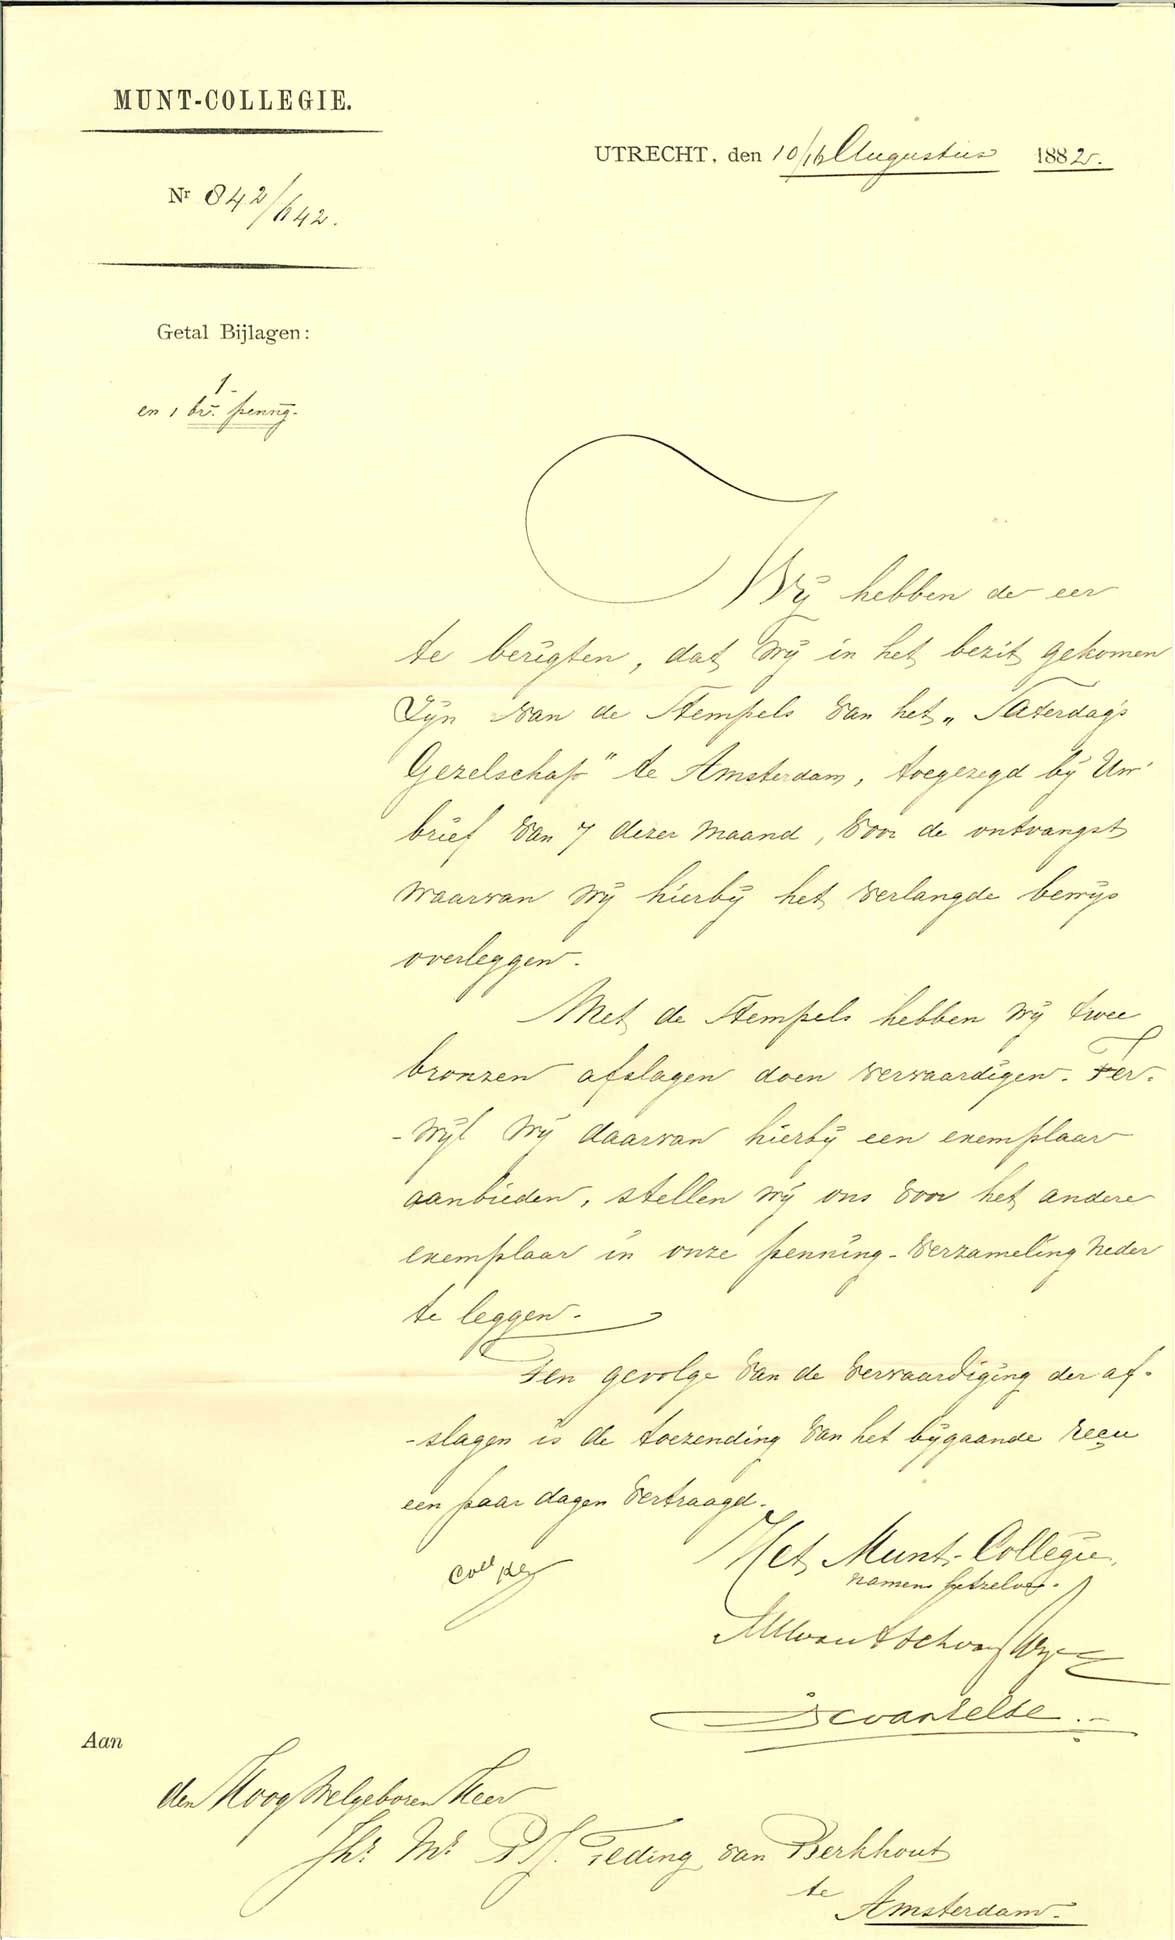 MUNT-COLLEGIE.
UTRECHT, den 10/16 Augustus 1882.
Nr 842/642.
Getal Bijlagen:
1.
en 1 br. pennig.
Wij hebben de eer
te berigten, dat wij in het bezit gekomen
Zijn van de Stempels van het „Saterdag's
Gezelschap" te Amsterdam, toegezegd bij Uw
brief van 7 dezer maand, voor de ontvangst
waarvan wij hierbij het verlangde bewijs
overleggen.
Met de Stempels hebben wij twee
bronzen afslagen doen vervaardigen. Ter-
-wijl wij daarvan hierbij een exemplaar
aanbieden, stellen wij ons voor het andere
exemplaar in onze penning-verzameling neder
te leggen.
Ten gevolge van de vervaardiging der af-
-slagen is de toezending van het bijgaande reçu
een paar dagen vertraagd.
Het Munt-Collegie,
namens hetzelve.
Coll
Aan
den HoogWelgeboren Heer
Jhr. Mr. P. J. Teding van Berkhout
te
Amsterdam.